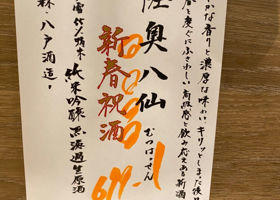 かな香りと濃厚な味わい、キリッとしまった後口
にふさわしい高級感と飲み応えある新酒
奥八仙
むつはっせん
新春祝酒
純米吟醸 無濾過生原酒
森・八戸酒造